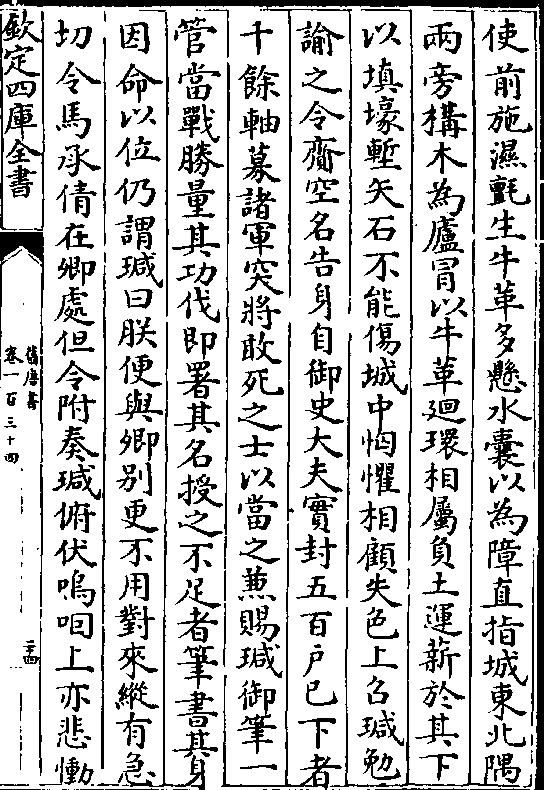 使前施濕氈生牛革多懸水囊以為障直指城東北隅
兩旁構木為廬冒以牛革廻環相屬負土運薪於其下
以填壕塹矢石不能傷城中恟懼相顧失色上召瑊勉
諭之令齎空名告身自御史大夫實封五百户已下者
千餘軸募諸軍突將敢死之士以當之兼賜瑊御筆一
管當戰勝量其功伐即署其名授之不足者筆書其身
因命以位仍謂瑊曰朕便與卿别更不用對來縱有急
切令馬承倩在卿處但令附奏瑊俯伏嗚咽上亦悲慟
欽定四庫全書
舊唐書
卷一百三十四
二四